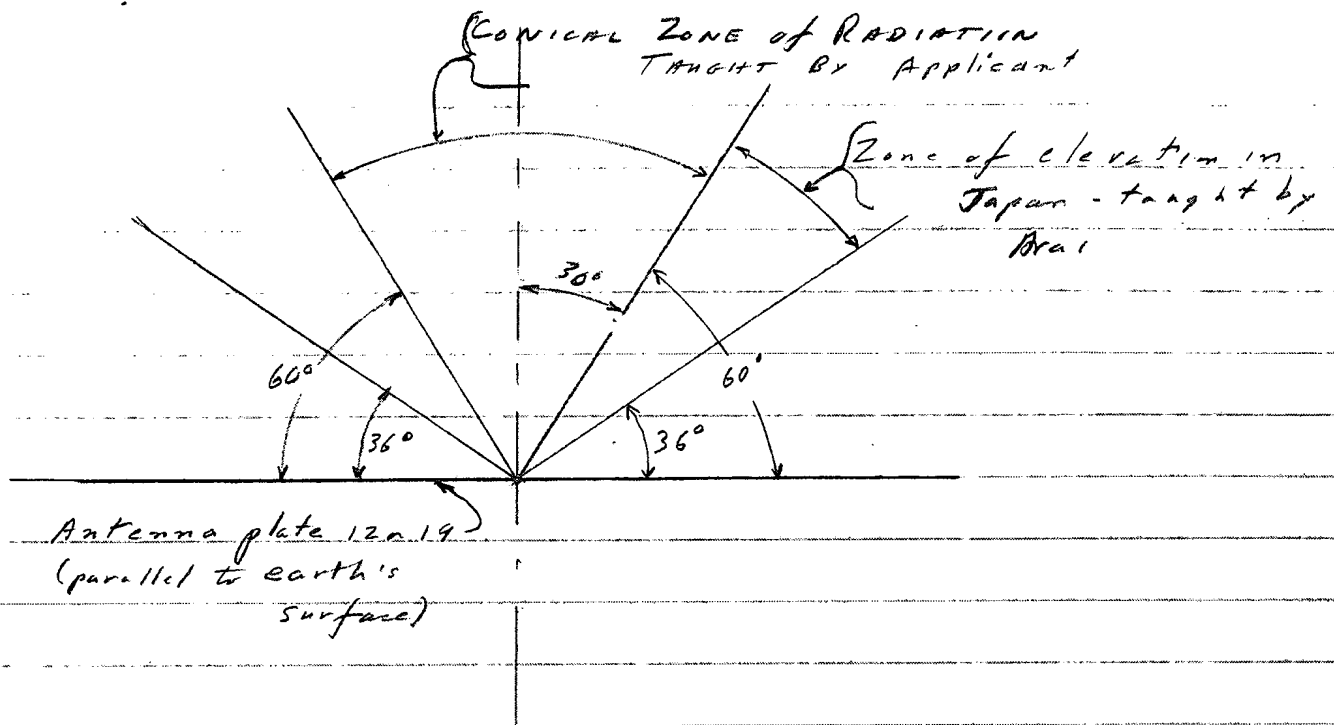 CONICAL ZONE of RADIATION
TAUGHT BY Applicant
Zone of elevation in
Japan - taught by
Arai
30°
60°
60°
36°
36°
Antenna plate 12 or 19
(parallel to earth's
surface)